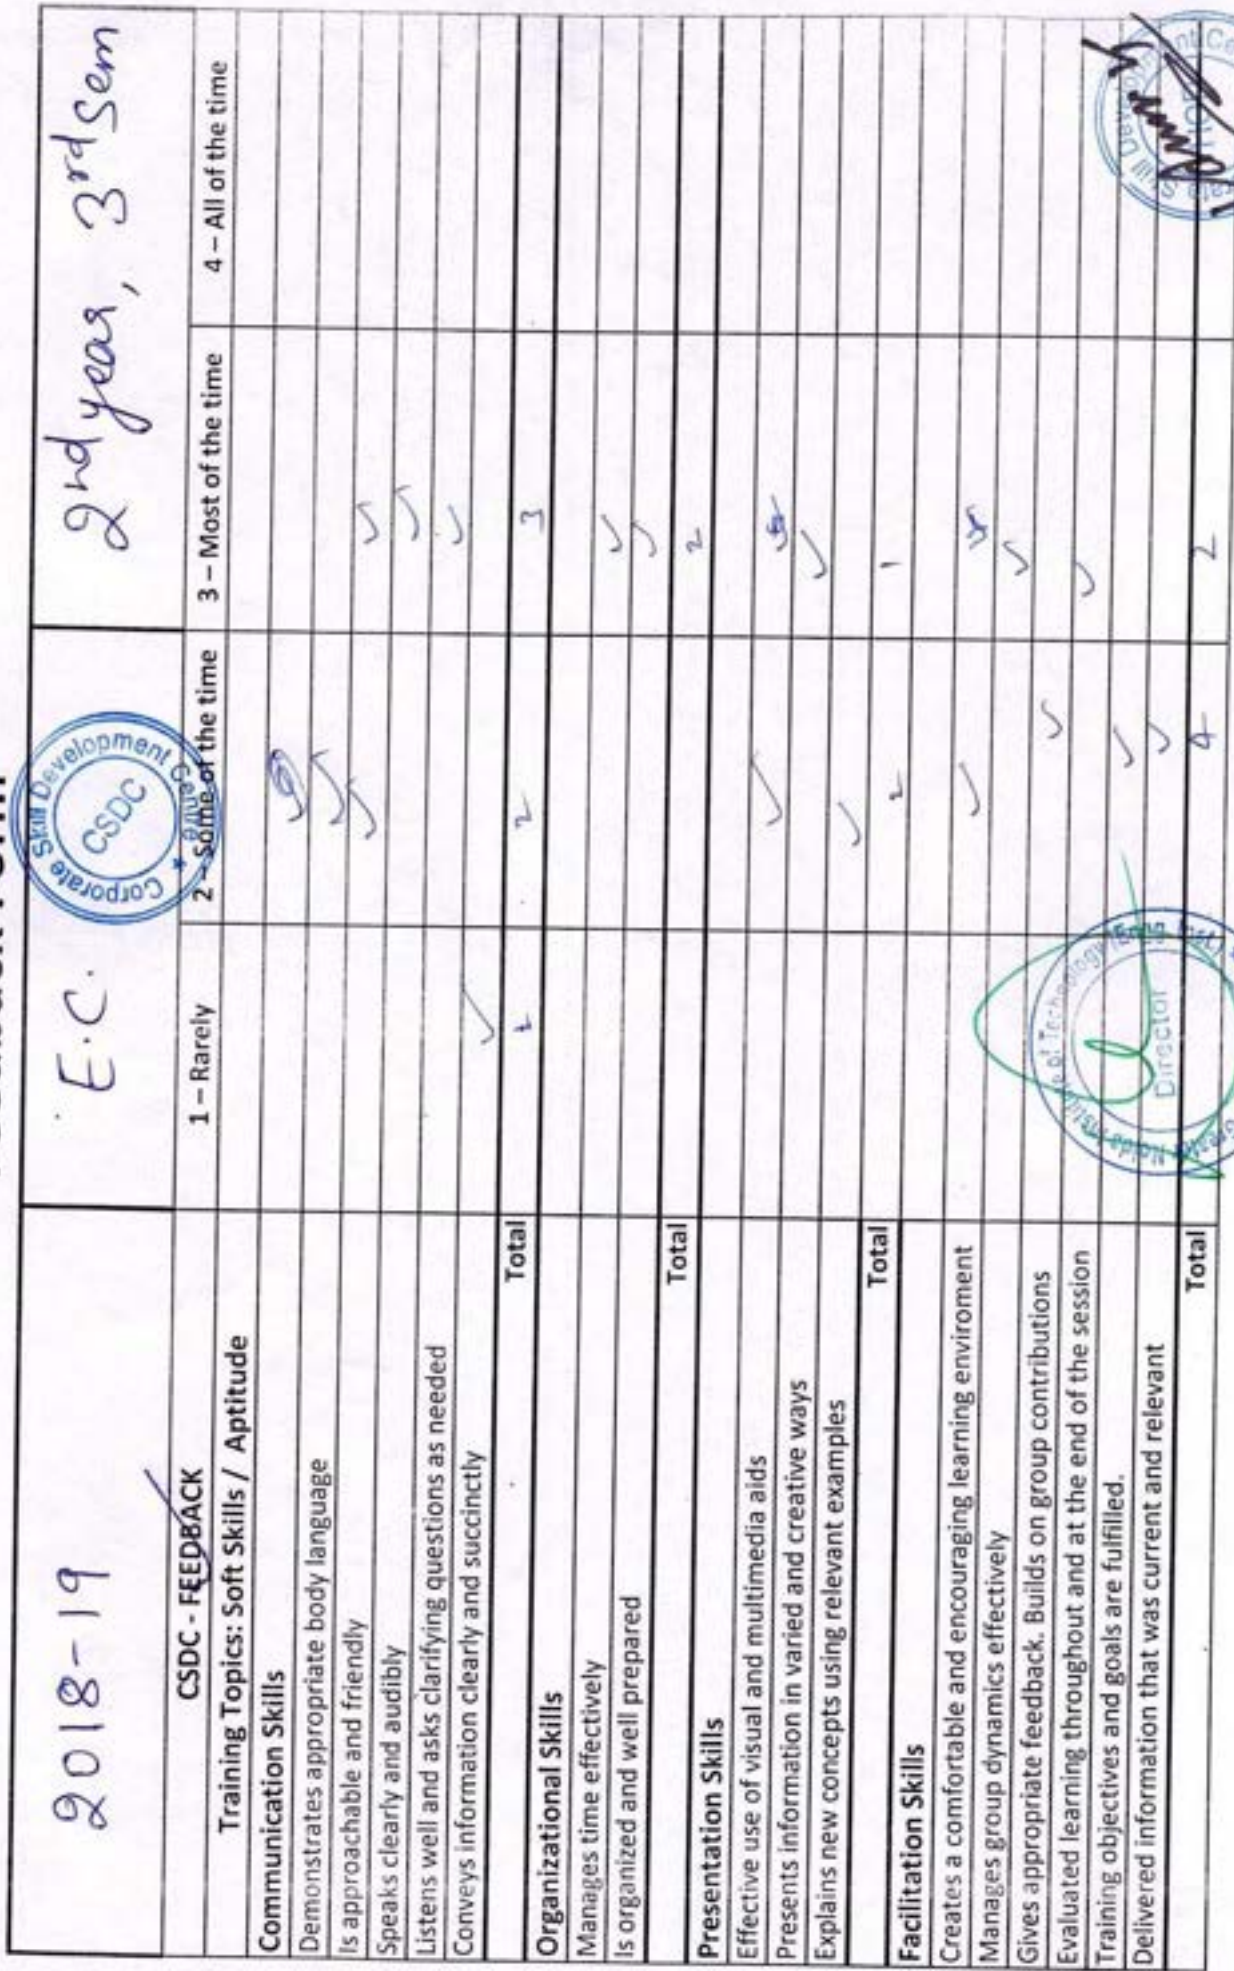 2018-19 E.C. 2nd year, 3rd Sem
Corporate Skill Development Centre
CSDC
CSDC - FEEDBACK 1 – Rarely 2 – Some of the time 3 – Most of the time 4 – All of the time
Training Topics: Soft Skills / Aptitude
Communication Skills
Demonstrates appropriate body language ✓
Is approachable and friendly ✓ ✓
Speaks clearly and audibly ✓
Listens well and asks clarifying questions as needed ✓
Conveys information clearly and succinctly ✓
Total 2 3
Organizational Skills
Manages time effectively ✓
Is organized and well prepared ✓
Total 2
Presentation Skills
Effective use of visual and multimedia aids ✓
Presents information in varied and creative ways ✓
Explains new concepts using relevant examples ✓
Total 2 1
Facilitation Skills
Creates a comfortable and encouraging learning enviroment ✓
Manages group dynamics effectively ✓
Gives appropriate feedback. Builds on group contributions ✓
Evaluated learning throughout and at the end of the session ✓
Training objectives and goals are fulfilled. ✓
Delivered information that was current and relevant ✓
Total 4 2
Director